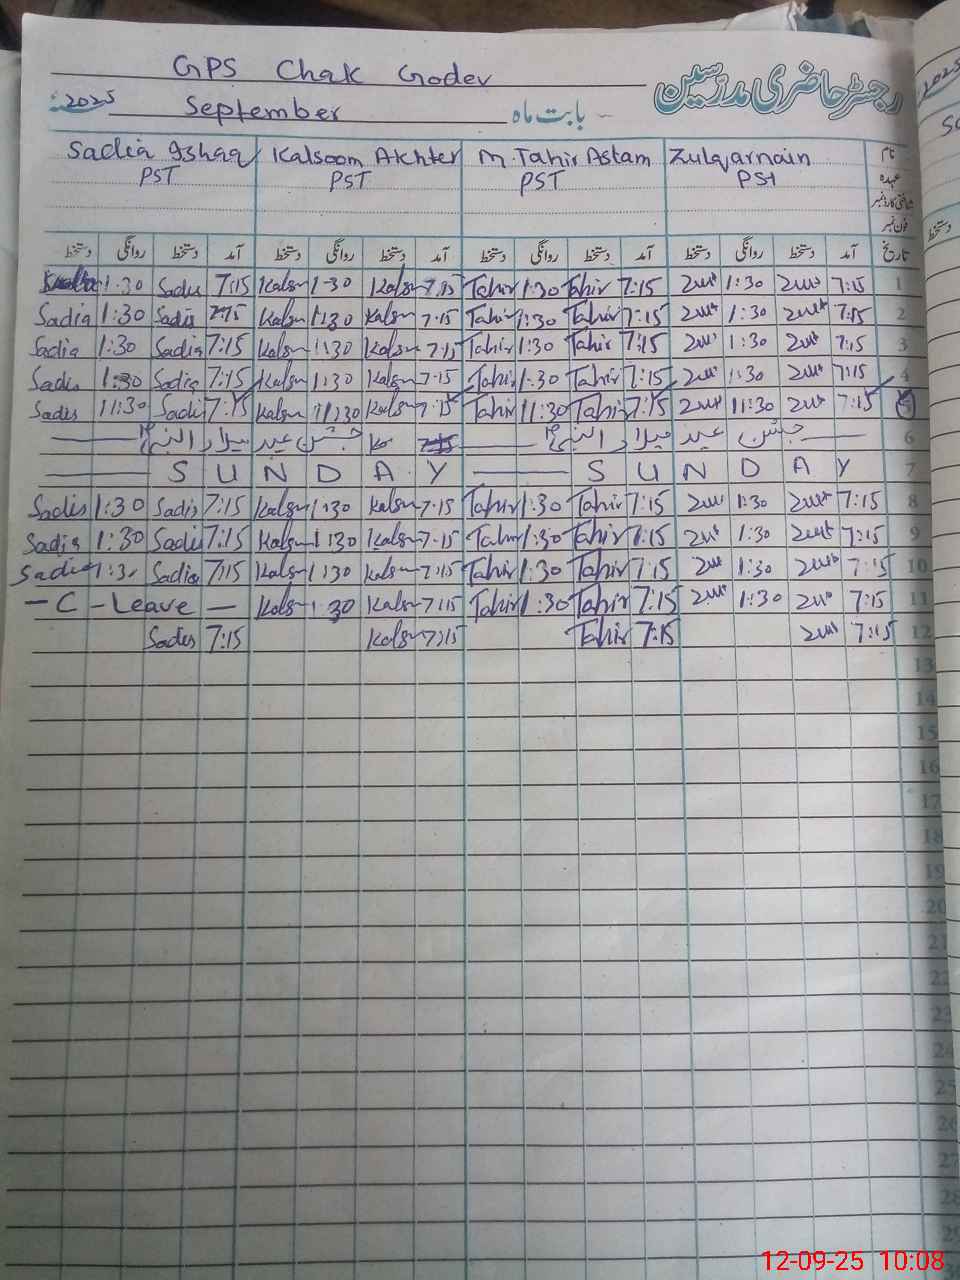 GPS Chak Godev
رجسٹر حاضری مدرسین
2025 September بابت ماہ
Sadia Ishaq Kalsoom Akhter M. Tahir Aslam Zulqarnain نام
PST PST PST PST عہدہ
شناختی کارڈ نمبر
فون نمبر
دستخط روانگی دستخط آمد دستخط روانگی دستخط آمد دستخط روانگی دستخط آمد دستخط روانگی دستخط آمد تاریخ
1:30 Sadia 7:15 Kalsm 1:30 Kalsm 7:15 Tahir 1:30 Tahir 7:15 1:30 7:15 1
Sadia 1:30 Sadia 7:15 Kalsm 1:30 Kalsm 7:15 Tahir 1:30 Tahir 7:15 1:30 7:15 2
Sadia 1:30 Sadia 7:15 Kalsm 1:30 Kalsm 7:15 Tahir 1:30 Tahir 7:15 1:30 7:15 3
Sadia 1:30 Sadia 7:15 Kalsm 1:30 Kalsm 7:15 Tahir 1:30 Tahir 7:15 1:30 7:15 4
Sadia 11:30 Sadia 7:15 Kalsm 11:30 Kalsm 7:15 Tahir 11:30 Tahir 7:15 11:30 7:15 5
جشن عید میلاد النبیؐ جشن عید میلاد النبیؐ 6
S U N D A Y S U N D A Y 7
Sadia 1:30 Sadia 7:15 Kalsm 1:30 Kalsm 7:15 Tahir 1:30 Tahir 7:15 1:30 7:15 8
Sadia 1:30 Sadia 7:15 Kalsm 1:30 Kalsm 7:15 Tahir 1:30 Tahir 7:15 1:30 7:15 9
Sadia 1:30 Sadia 7:15 Kalsm 1:30 Kalsm 7:15 Tahir 1:30 Tahir 7:15 1:30 7:15 10
- C - Leave - Kalsm 1:30 Kalsm 7:15 Tahir 1:30 Tahir 7:15 1:30 7:15 11
Sadia 7:15 Kalsm 7:15 Tahir 7:15 7:15 12
13
14
15
16
17
18
19
20
21
22
23
24
25
26
27
28
29
12-09-25 10:08